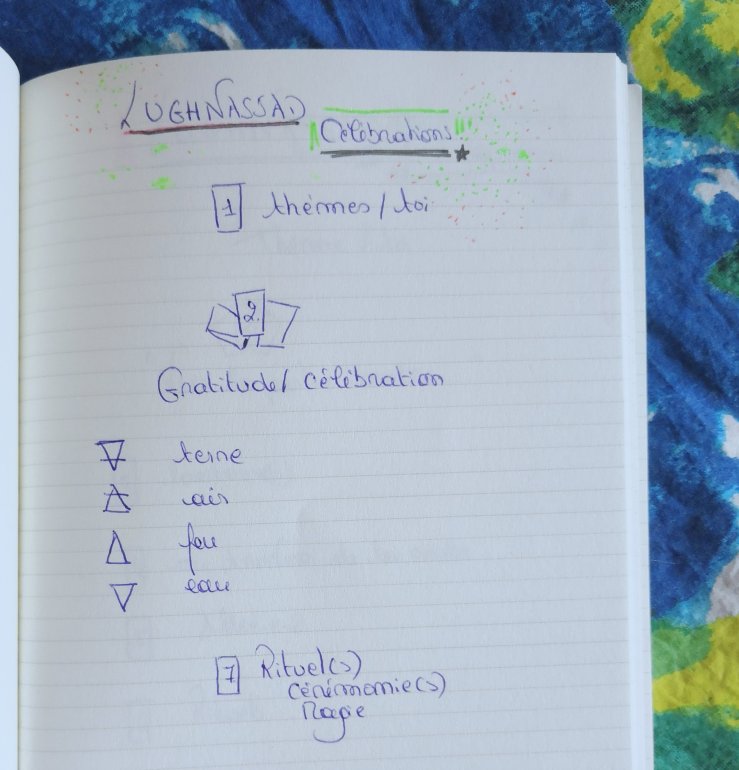 LUGHNASSAD
Célébrations
1 thèmes / toi
2.
Gratitude / célébration
terre
air
feu
eau
7 Rituel(s)
cérémonie(s)
Magie